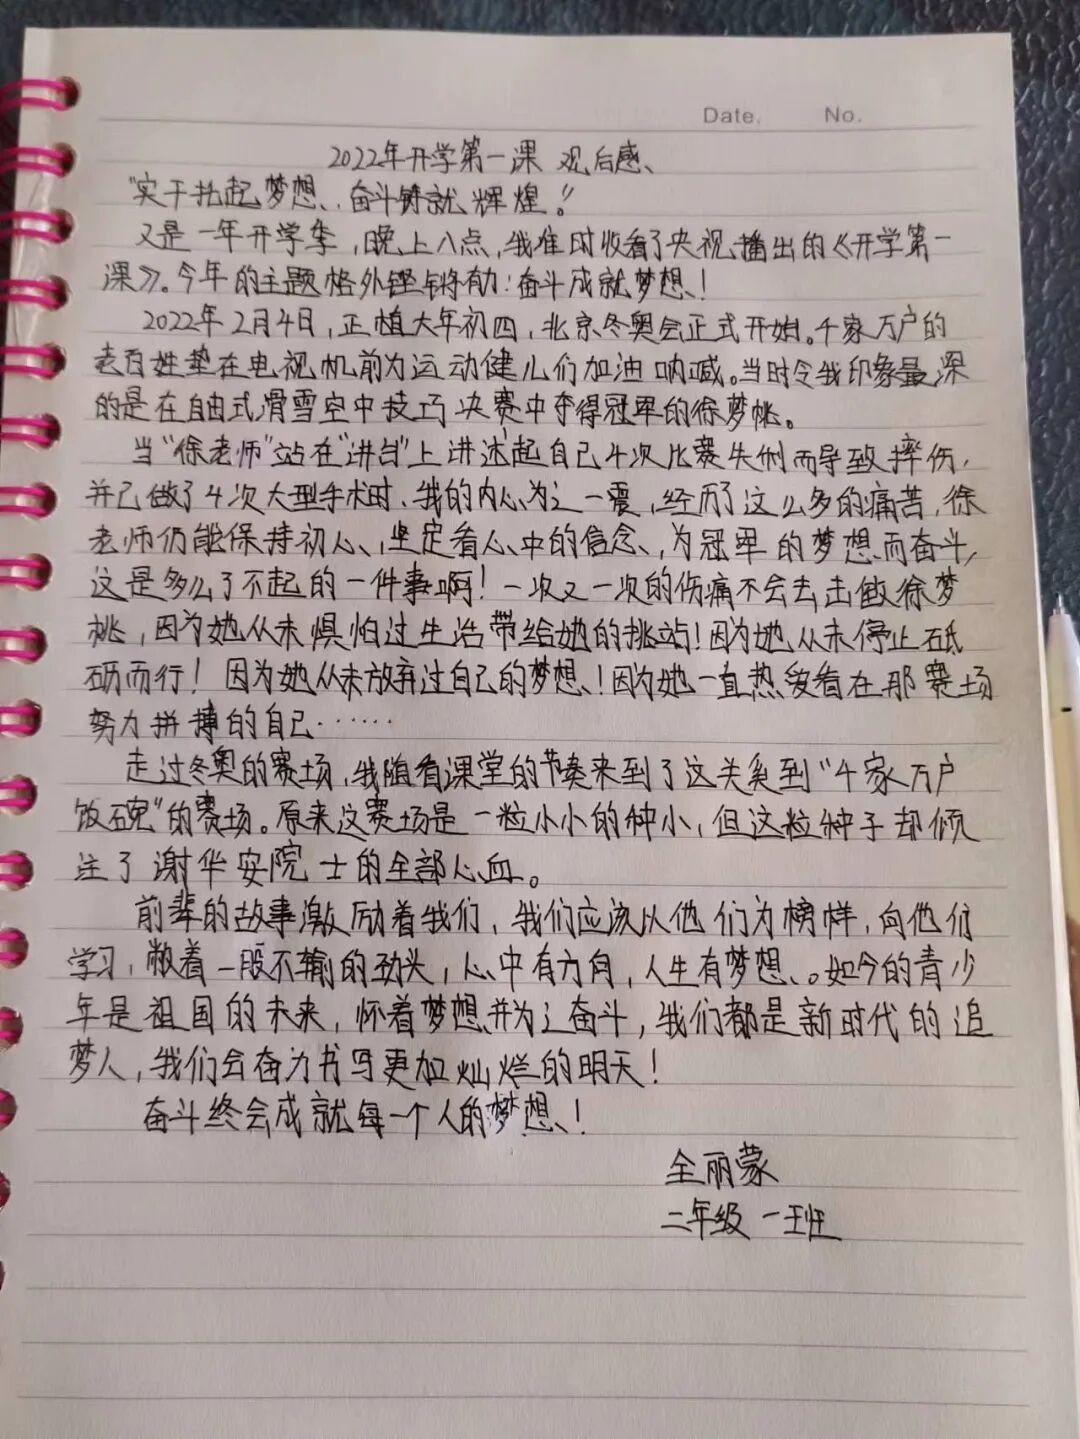 Date.	No.
2022年开学第一课 观后感、
"实干托起梦想、奋斗铸就辉煌。"
又是一年开学季,晚上八点,我准时收看了央视播出的《开学第一
课》。今年的主题格外铿锵有力:奋斗成就梦想!
2022年2月4日,正值大年初四,北京冬奥会正式开始。千家万户的
老百姓垫在电视机前为运动健儿们加油呐喊。当时令我印象最深
的是在自由式滑雪空中技巧决赛中夺得冠军的徐梦桃。
当"徐老师"站在"讲台"上讲述起自己4次比赛失利而导致摔伤,
并已做了4次大型手术时、我的内心为之一震,经历了这么多的痛苦,徐
老师仍能保持初心、坚定着心中的信念、为冠军的梦想而奋斗,
这是多么了不起的一件事啊!一次又一次的伤痛不会去击做徐梦
桃,因为她从未惧怕过生活带给她的挑站!因为她从未停止砥
砺而行!因为她从未放弃过自己的梦想!因为她一直热爱着在那赛场
努力拼搏的自己……
走过冬奥的赛场,我随着课堂的节奏来到了这关系到"千家万户
饭碗"的赛场。原来这赛场是一粒小小的种小,但这粒种子却倾
注了谢华安院士的全部心血。
前辈的故事激励着我们,我们应该以他们为榜样,向他们
学习,敝着一股不输的劲头,心中有方向,人生有梦想。如今的青少
年是祖国的未来,怀着梦想并为之奋斗,我们都是新时代的追
梦人,我们会奋力书写更加灿烂的明天!
奋斗终会成就每一个人的梦想!
全丽蒙
二年级 一班